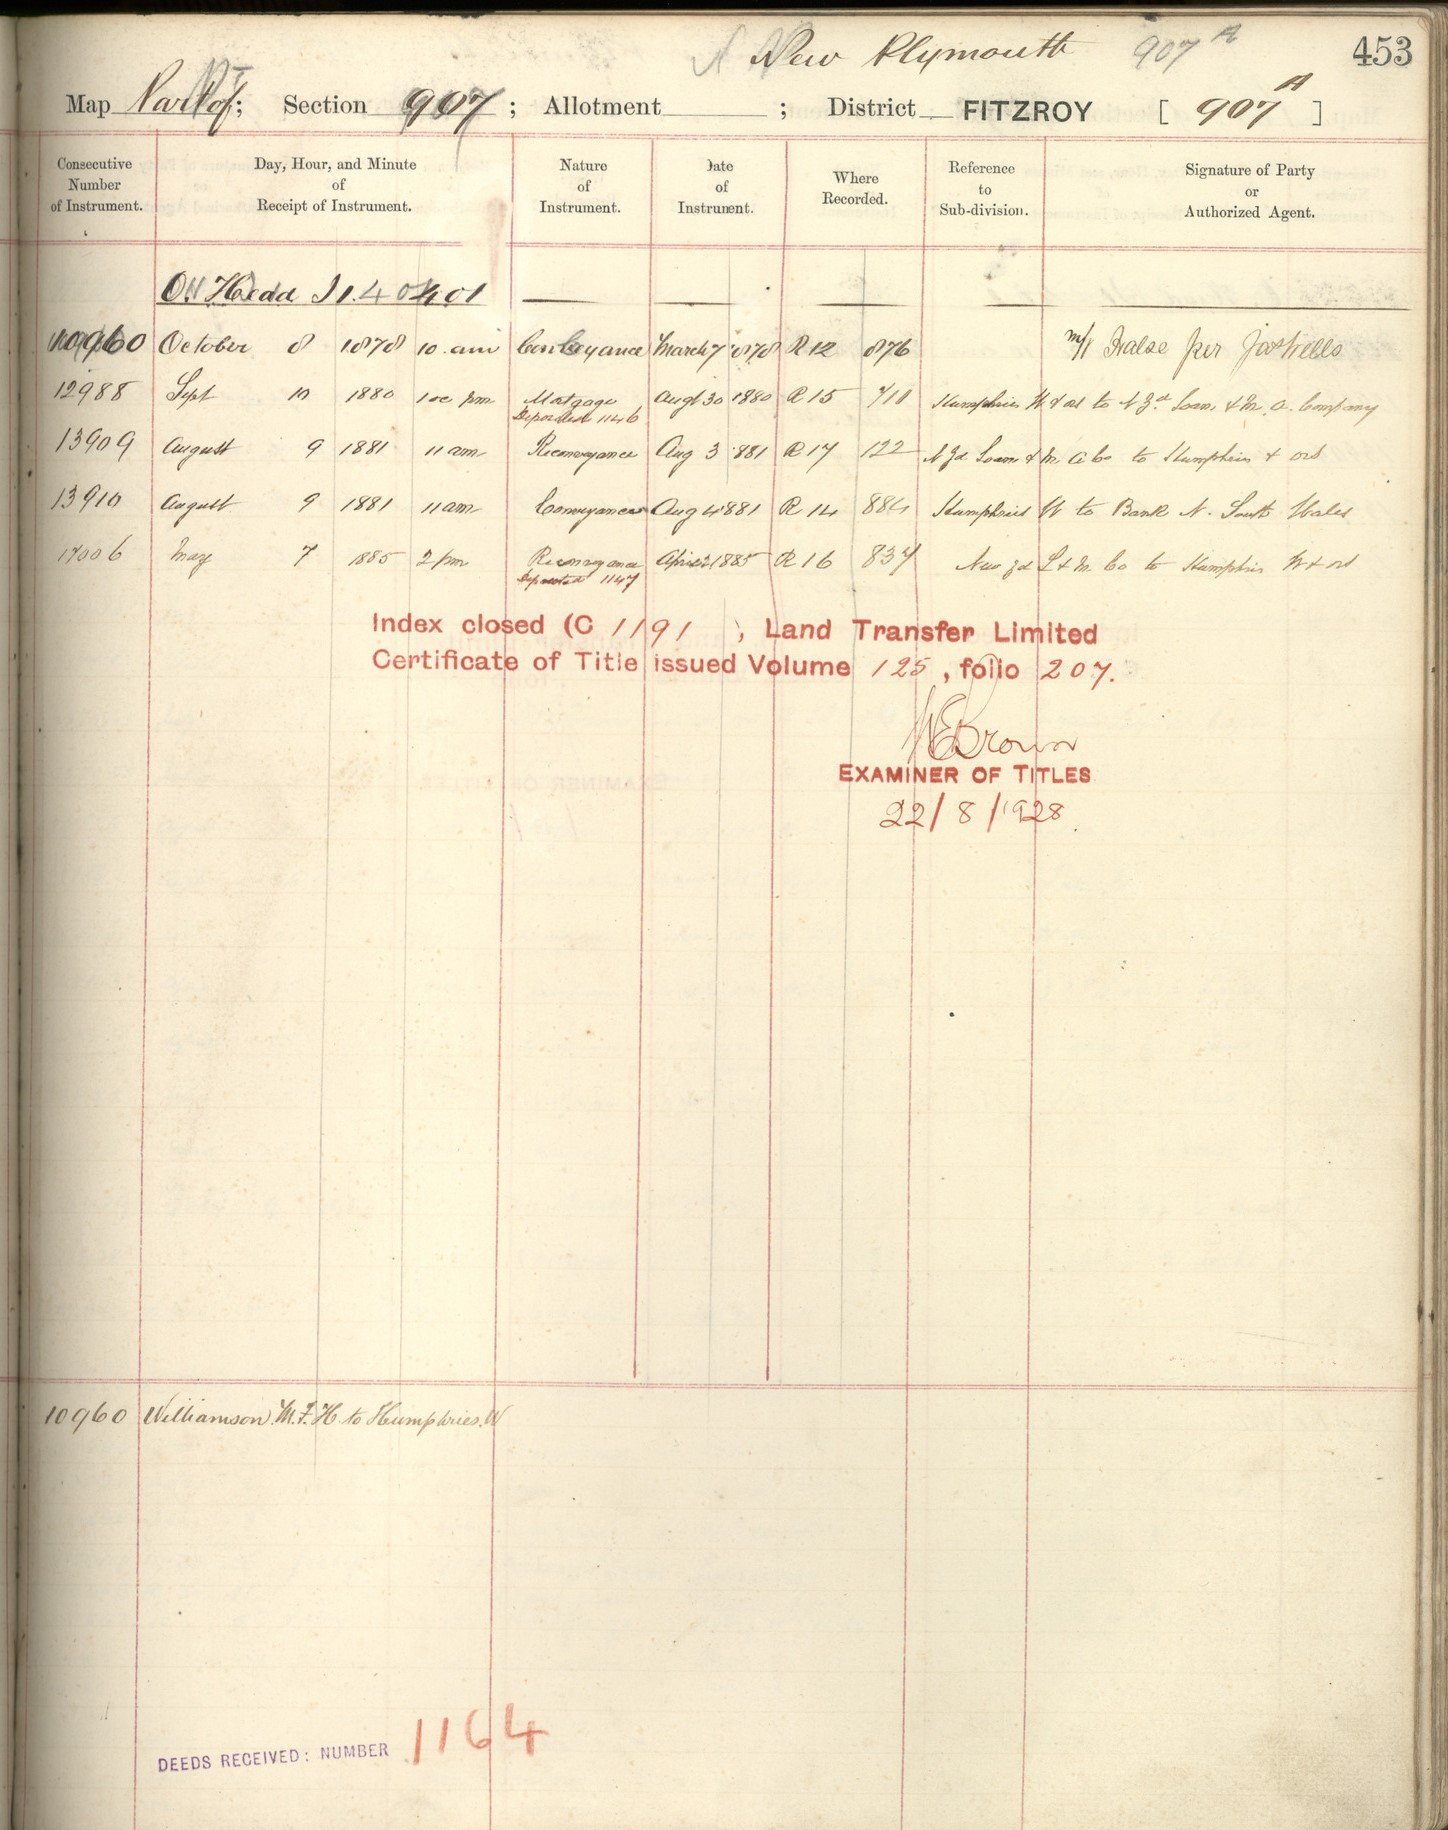 New Plymouth 907 A 453
Map Part of; Section 907; Allotment ; District FITZROY [ 907 A ]
Consecutive Number of Instrument. Day, Hour, and Minute of Receipt of Instrument. Nature of Instrument. Date of Instrument. Where Recorded. Reference to Sub-division. Signature of Party or Authorized Agent.
10960 October 8 1878 10 am Conveyance March 7 1878 R 12 876 Halse per Jas Wells
12988 Sept 10 1880 Mortgage Aug 30 1880 R 15 710 Humphries W & ors to N Zd Loan & M. A. Company
Deposited 1146
13909 August 9 1881 11 am Reconveyance Aug 3 1881 R 17 122 N Zd Loan & M. A Co to Humphries & ors
13910 August 9 1881 11 am Conveyance Aug 4 1881 R 14 884 Humphries W to Bank N. South Wales
17006 May 7 1885 2 pm Reconveyance April 1885 R 16 837 New Zd L & M. Co to Humphries W & ors
Deposited 1147
Index closed (C 1191 ), Land Transfer Limited
Certificate of Title issued Volume 125, folio 207.
Brown
EXAMINER OF TITLES
22/8/1928.
10960 Williamson. M. F. H to Humphries. W
DEEDS RECEIVED: NUMBER 1164